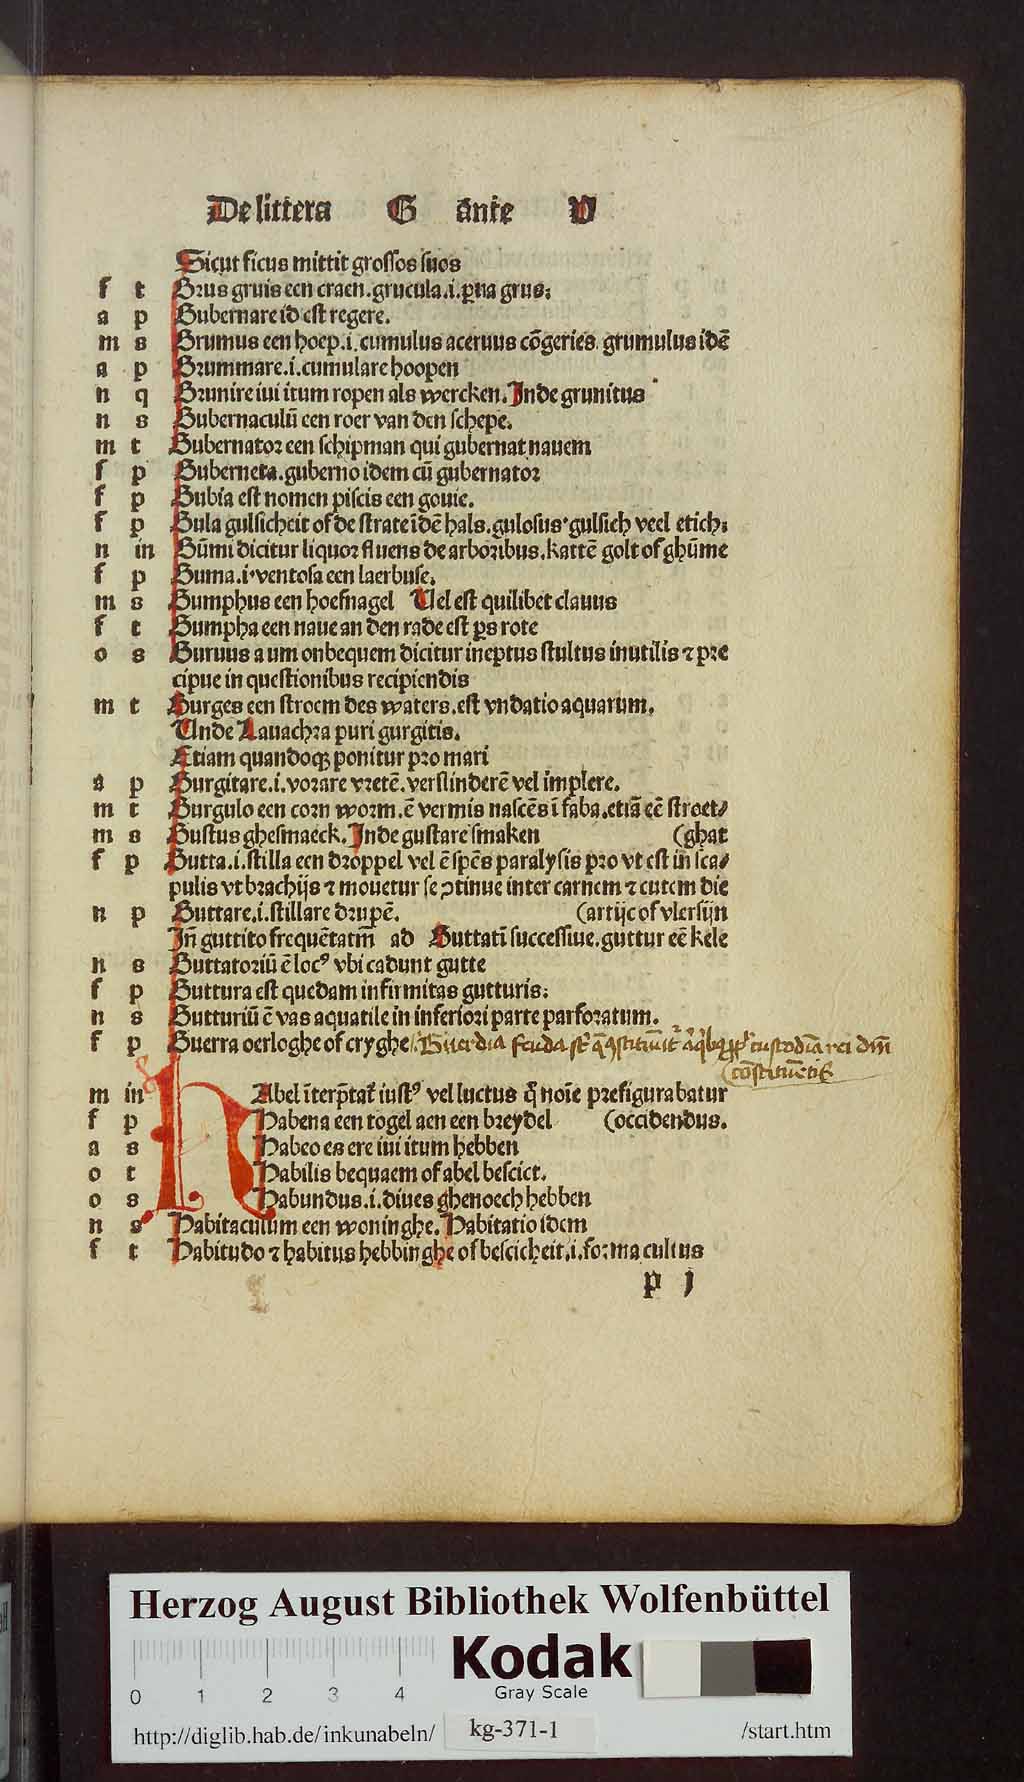 De littera G ante V
Sicut ficus mittit grossos suos
f t Grus gruis een craen. grucula .i. ꝑua grus:
a p Gubernare id est regere.
m s Grumus een hoep .i. cumulus aceruus cōgeries. grumulus idē
a p Grummare .i. cumulare hoopen
n q Grunire iui itum ropen als wercken. Inde grunitus
n s Gubernaculū een roer van den schepe.
m t Gubernator een schipman qui gubernat nauem
f p Guberneta. guberno idem cū gubernator
f p Gubia est nomen piscis een gouie.
f p Gula gulsicheit of de strate ī dē hals. gulosus gulsich veel etich:
n in Gūmi dicitur liquor fluens de arboribus. kattē golt of ghūme
f p Guma .i. ventosa een laerbuse.
m s Gumphus een hoefnagel Uel est quilibet clauus
f t Gumpha een naue an den rade est ꝑs rote
o s Guruus a um onbequem dicitur ineptus stultus inutilis ⁊ pre
cipue in questionibus recipiendis
m t Gurges een stroem des waters. est vndatio aquarum.
Unde Lauachra puri gurgitis.
Etiam quandoqꝫ ponitur pro mari
a p Gurgitare .i. vorare vretē. verslinderē vel implere.
m t Gurgulo een corn worm. ē vermis nascēs ī faba. etiā eē stroet/
m s Gustus ghesmaeck. Inde gustare smaken (ghat
f p Gutta .i. stilla een droppel vel ē spēs paralysis pro vt est in sca/
pulis vt brachijs ⁊ mouetur se ꝯtinue inter carnem ⁊ cutem die
n p Guttare .i. stillare drupē. (artijc of vlersijn
Jn̄ guttito frequētatm̄ ad Guttatī successiue. guttur eē kele
n s Guttatoriū ē locꝰ vbi cadunt gutte
f p Guttura est quedam infirmitas gutturis:
n s Gutturiū ē vas aquatile in inferiori parte parforatum.
f p Guerra oerloghe of cryghe Guerdia feuda custodiā rei
m in HAbel īterp̄tatᷣ iustꝰ vel luctus q̄ noīe prefigurabatur
f p Habena een togel aen een breydel (occidendus.
a s Habeo es ere iui itum hebben
o t Habilis bequaem of abel bescict.
o s Habundus .i. diues ghenoech hebben
n s Habitaculum een woninghe. Habitatio idem
f t Habitudo ⁊ habitus hebbinghe of bescicheit .i. forma cultus
p j
Herzog August Bibliothek Wolfenbüttel
0 1 2 3 4
Kodak
Gray Scale
http://diglib.hab.de/inkunabeln/ kg-371-1 /start.htm